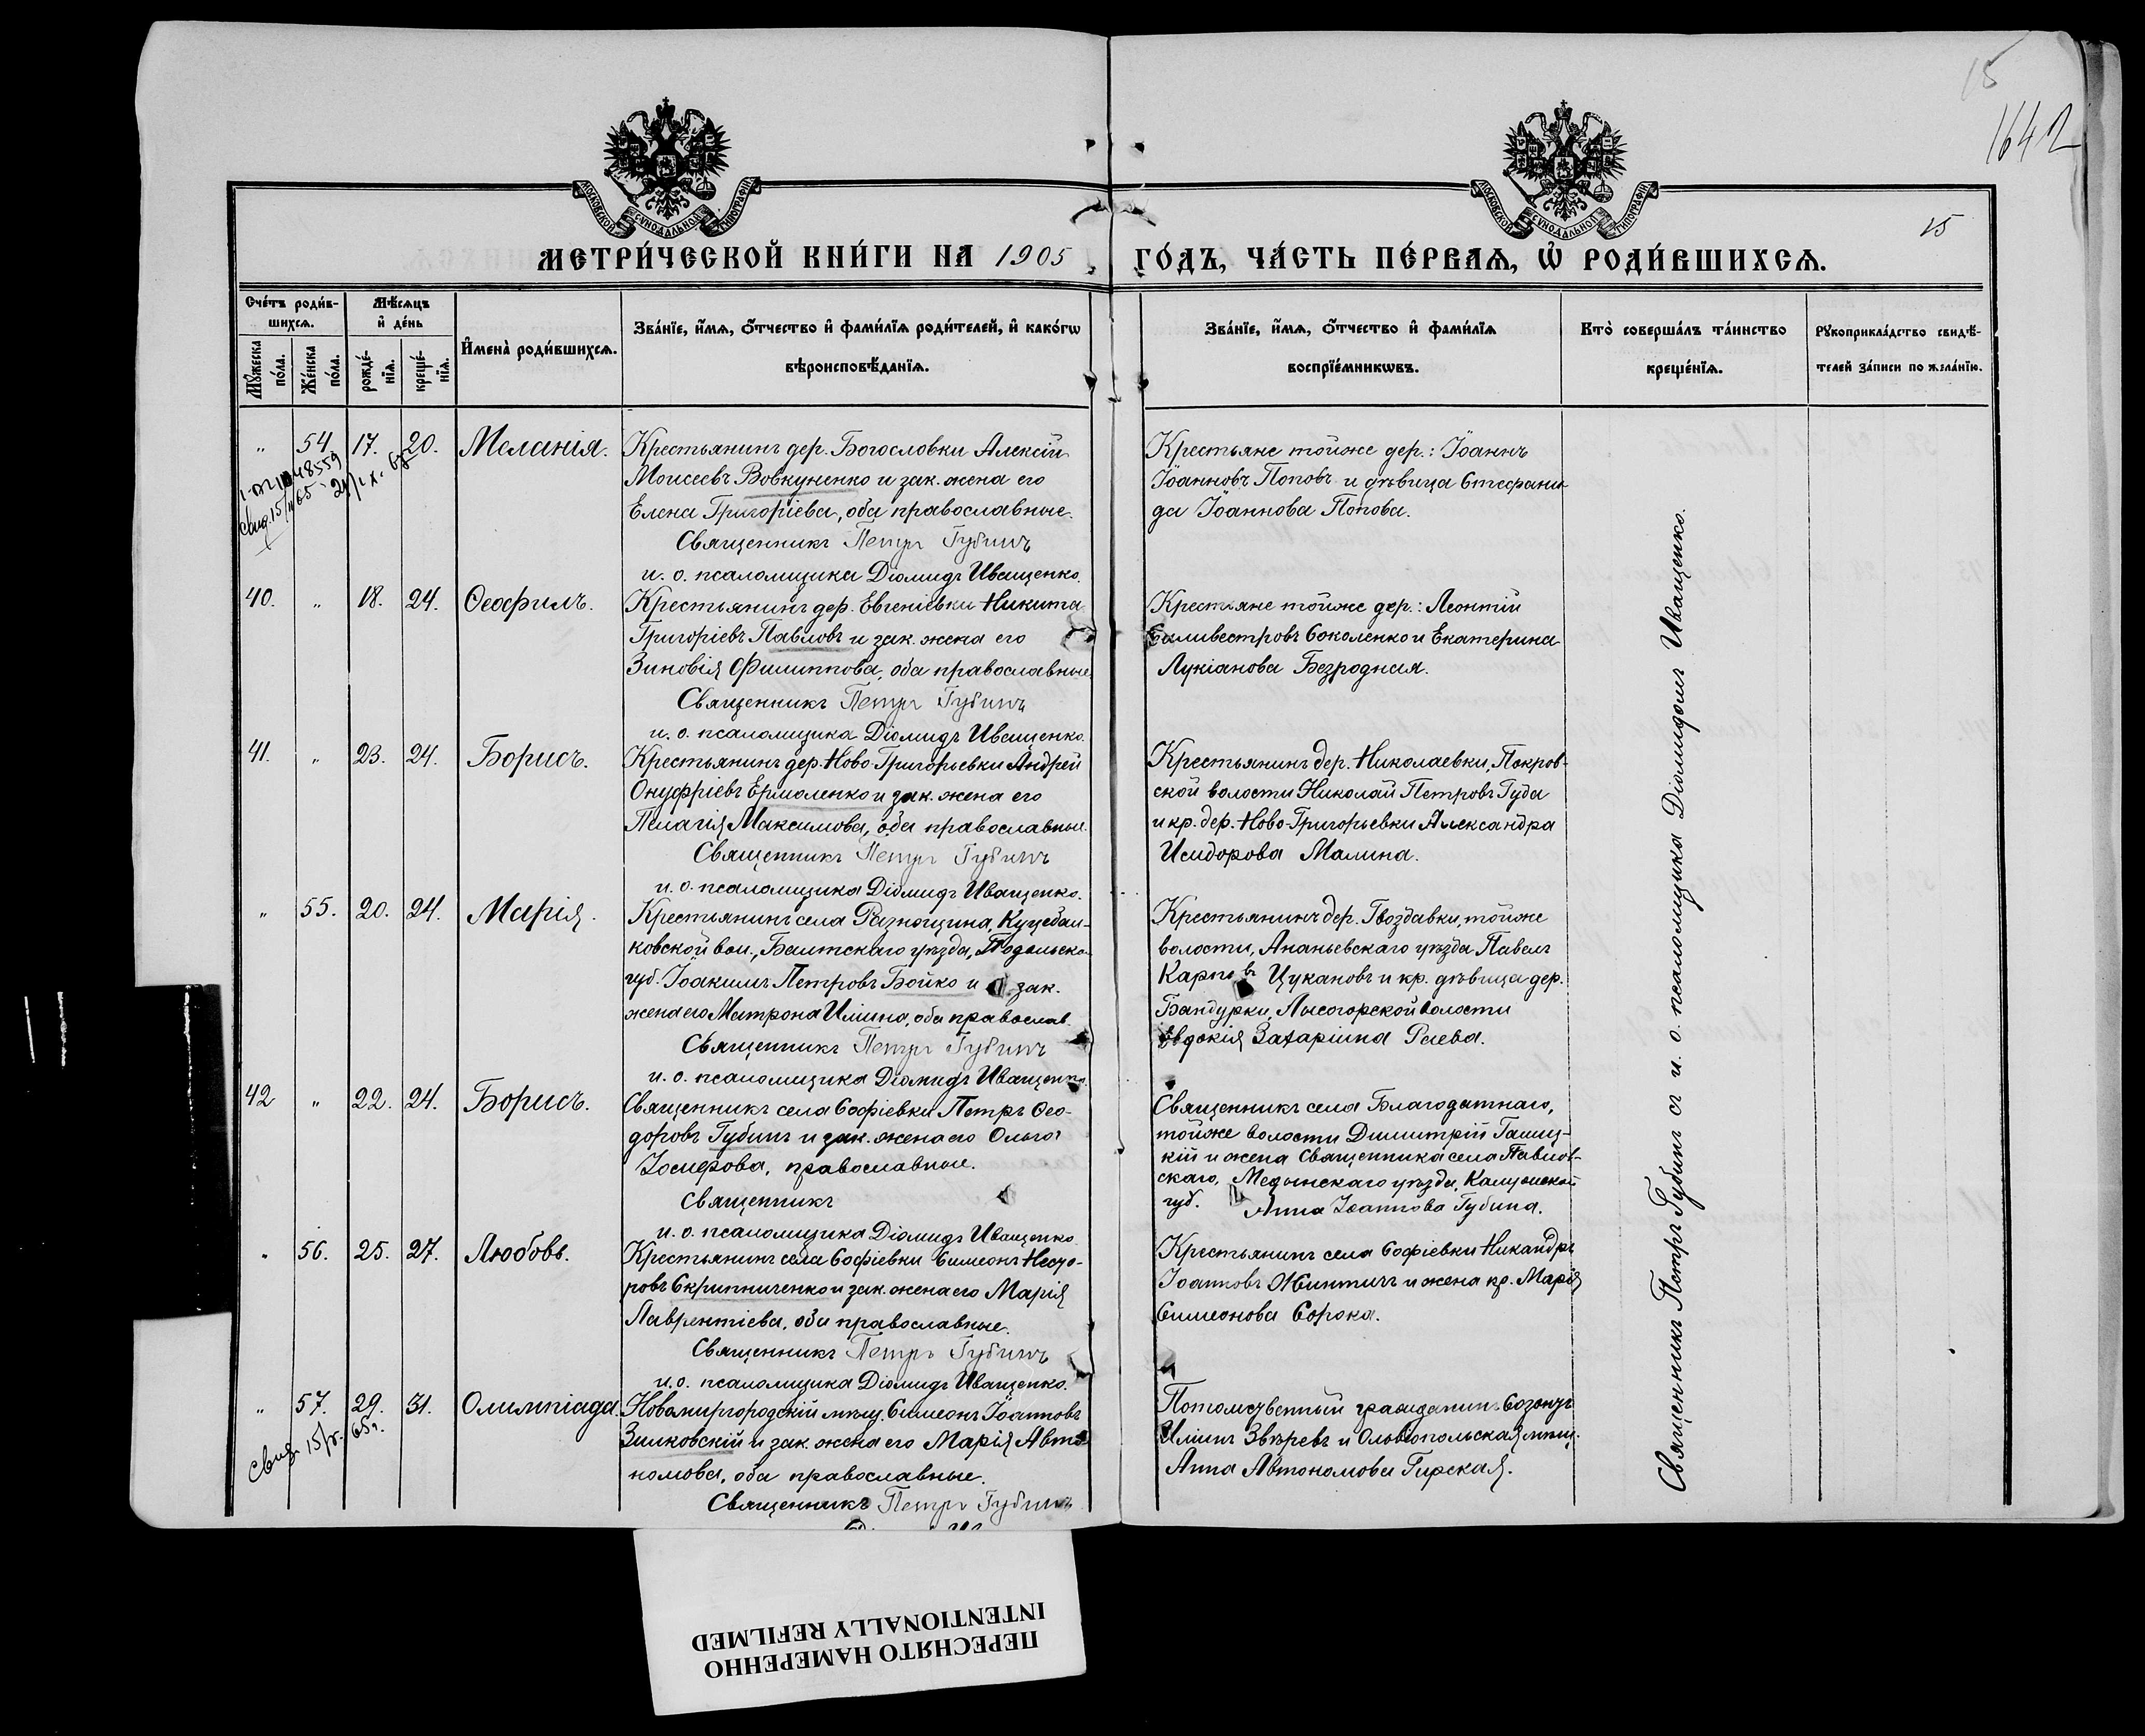 15
1642
15
МОСКОВСКОЙ СѴНОДАЛЬНОЙ ТИПОГРАФІИ
МОСКОВСКОЙ СѴНОДАЛЬНОЙ ТИПОГРАФІИ
МЕТРИ́ЧЕСКОЙ КНИ́ГИ НА 1905 ГО́ДЪ, ЧА́СТЬ ПЕ́РВАѦ, Ѽ РОДИ́ВШИХСѦ.
Сче́тъ роди́в-
шихсѧ.
Мѣ́сѧцъ
и҆ де́нь
Мꙋ́жеска по́ла.
Же́нска по́ла.
рожде́-
нїѧ.
креще́-
нїѧ.
И҆мена̀ роди́вшихсѧ.
Зва́нїе, и҆́мѧ, ѻ҆́тчество и҆ фами́лїѧ роди́телей, и҆ како́гѡ
вѣроисповѣ́данїѧ.
Зва́нїе, и҆́мѧ, ѻ҆́тчество и҆ фами́лїѧ
воспрїе́мникѡвъ.
Кто̀ соверша́лъ та́инство
креще́нїѧ.
Рꙋкоприкла́дство свидѣ́-
телей за́писи по жела́нїю.
" 54. 17. 20. Меланія.
Крестьянинъ дер. Богословки Алексій
Моисеевъ Вовкуненко и зак. жена его
Елена Григоріева, оба православные.
Священникъ Петръ Губинъ
и. о. псаломщика Діомидъ Иващенко.
Крестьяне тойже дер.: Іоаннъ
Іоанновъ Поповъ и дѣвица Стефани-
да Іоаннова Попова.
40. " 18. 24. Ѳеофилъ.
Крестьянинъ дер. Евгеніевки Никита
Григоріевъ Павловъ и зак. жена его
Зиновія Филиппова, оба православные.
Священникъ Петръ Губинъ
и. о. псаломщика Діомидъ Иващенко.
Крестьяне тойже дер.: Леонтій
Силивестровъ Соколенко и Екатерина
Лукіанова Безродная.
41. " 23. 24. Борисъ.
Крестьянинъ дер. Ново-Григорьевки Андрей
Онуфріевъ Ермоленко и зак. жена его
Пелагія Максимова, оба православные.
Священникъ Петръ Губинъ
и. о. псаломщика Діомидъ Иващенко.
Крестьянинъ дер. Николаевки, Покров-
ской волости Николай Петровъ Гуда
и кр. дер. Ново-Григорьевки Александра
Исидорова Малина.
" 55. 20. 24. Марія.
Крестьянинъ села Разнощина, Куцебал-
ковской вол., Балтскаго уѣзда, Подольской
губ. Іоакимъ Петровъ Бойко и зак.
жена его Матрона Иліина, оба православ.
Священникъ Петръ Губинъ
и. о. псаломщика Діомидъ Иващенко.
Крестьянинъ дер. Гвоздавки, тойже
волости, Ананьевскаго уѣзда Павелъ
Карповъ Цукановъ и кр. дѣвица дер.
Бандурки, Лысогорской волости
Евдокія Захаріина Раева.
42 " 22. 24. Борисъ.
Священникъ села Софіевки Петръ Ѳео-
доровъ Губинъ и зак. жена его Ольга
Іосифова, православные.
Священникъ
и. о. псаломщика Діомидъ Иващенко.
Священникъ села Благодатнаго,
тойже волости Димитрій Галиц-
кій и жена Священника села Павлов-
скаго, Медынскаго уѣзда, Калужской
губ. Анна Іоаннова Губина.
" 56. 25. 27. Любовь.
Крестьянинъ села Софіевки Симеонъ Несто-
ровъ Скрипниченко и зак. жена его Марія
Лаврентіева, оба православные.
Священникъ Петръ Губинъ
и. о. псаломщика Діомидъ Иващенко.
Крестьянинъ села Софіевки Никандръ
Іоанновъ и жена кр. Марія
Симеонова Сорока.
" 57. 29. 31. Олимпіада.
Свид. 15/
Новомиргородскій мѣщ. Симеонъ Іоанновъ
Зилковскій и зак. жена его Марія Авто-
номова, оба православные.
Священникъ Петръ Губинъ
Потомственный гражданинъ Созонтъ
Иліинъ Звѣревъ и Ольвіопольская мѣщ.
Анна Автономова Гирская.
Священникъ Петръ Губинъ съ и. о. псаломщика Діомидомъ Иващенко.
ПЕРЕСНЯТО НАМЕРЕННО
INTENTIONALLY REFILMED